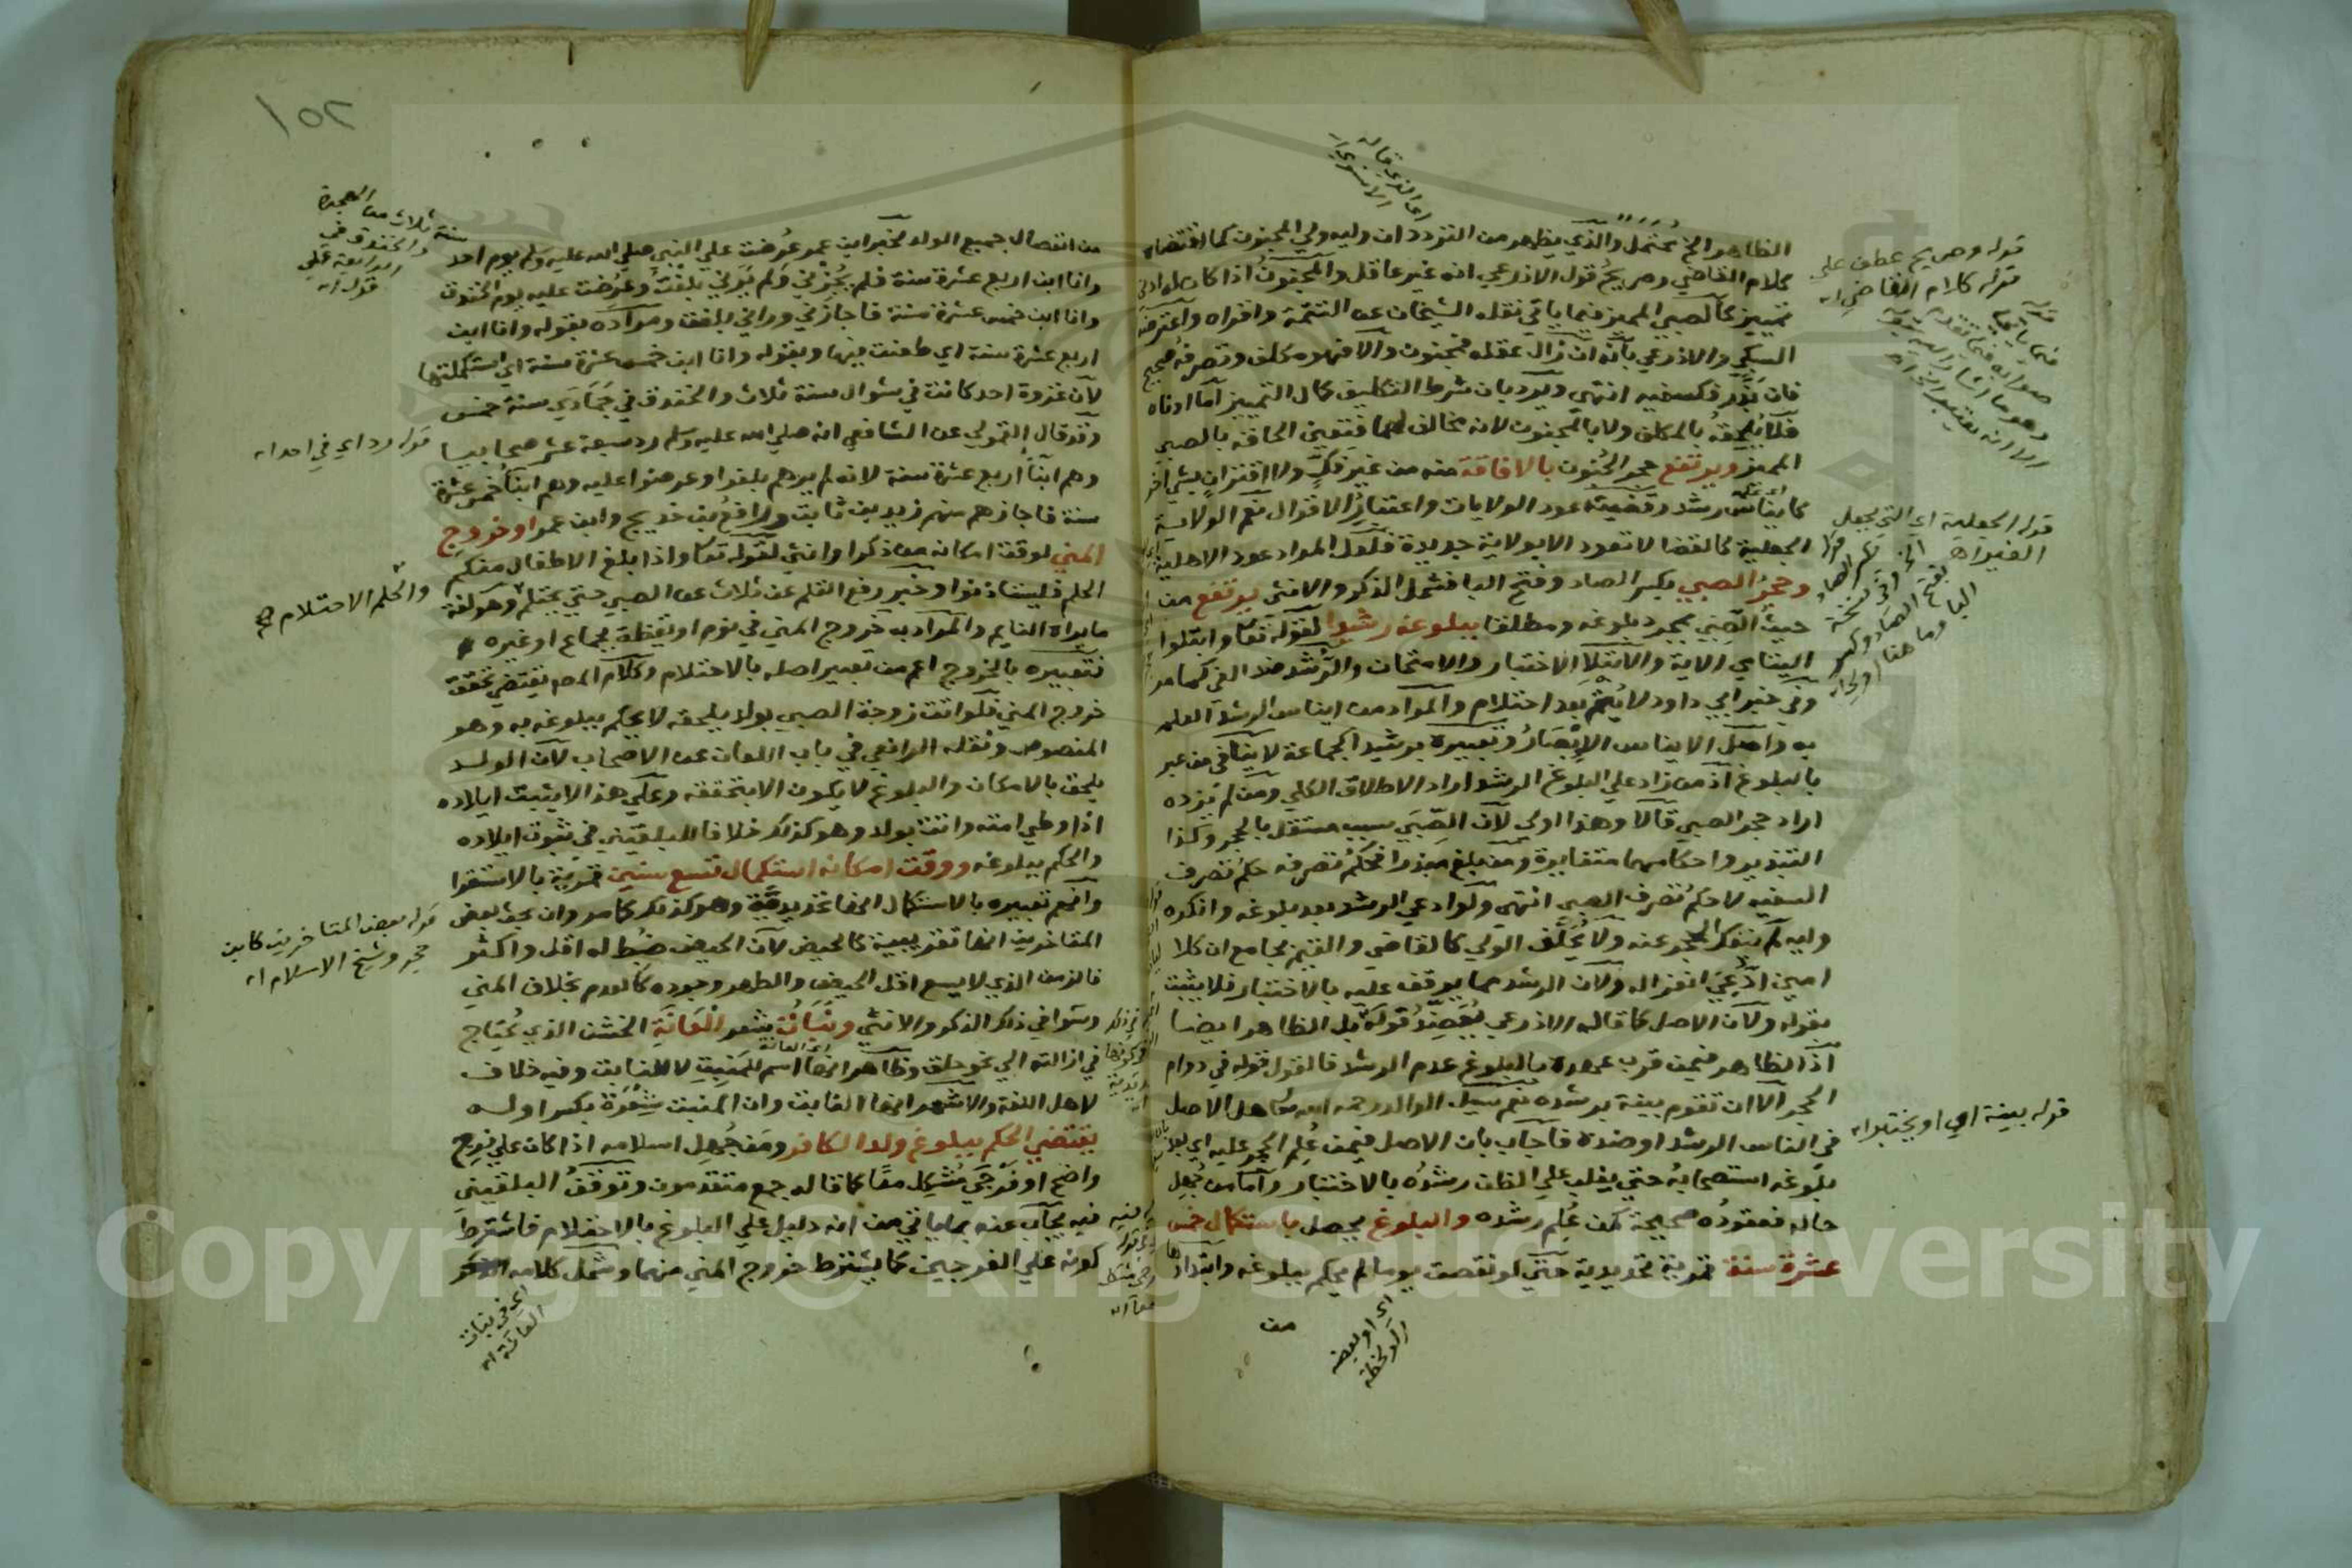 الظاهر الخ مُحتمَل والذي يظهر من التردد ان وليه ولي المجنون كما اقتضاه
كلام القاضي وصريح قول الاذرعي انه غير عاقل والمجنون اذا كان له ادنى
تمييز كالصبي المميز فيما ياتي نقله الشيخان عن التتمة واقراه واعترضه
السبكي والاذرعي بانه ان زال عقله فمجنون والا فهو مكلف وتصرفه صحيح
فان بذّر فكسفيه انتهى ويرد بان شرط التكليف كمال التمييز اما ادناه
فلا يُلحقه بالمكلف ولا بالمجنون لانه مخالف لهما فتعين الحاقه بالصبي
المميز ويرتفع حجر الجنون بالافاقة منه من غير فكٍّ ولا اقتران بشي اخر
كايناس رشد وقضيته عود الولايات واعتبار الاقوال نعم الولاية
الجعلية كالقضا لا تعود الا بولاية جديدة فلعل المراد عود الاهلية
وحجر الصبي بكسر الصاد وفتح البا فشمل الذكر والانثى يرتفع من
حيث الصبي بمجرد بلوغه ومطلقا ببلوغه رشيدا لقوله تعا وابتلوا
اليتامي الاية والابتلا الاختبار والامتحان والرُّشد ضد الغي كما مر
وفي خبر ابي داود لا يُتْم بعد احتلام والمراد من ايناس الرشد العلم
به واصل الايناس الابصَار وتعبيره برشيد الجماعة لا ينافي من عبر
بالبلوغ اذ من زاد علي البلوغ الرشد اراد الاطلاق الكلي ومن لم يزده
اراد حجر الصبي قالا وهذا اولي لان الصِّبَى سبب مستقل بالحجر وكذا
التبذير واحكامهما متغايرة ومن بلغ مبذرا فحُكم تصرفه حكم تصرف
السفيه لا حكم تصرف الصبي انتهى ولو ادعي الرشد بعد بلوغه وانكره
وليه لم ينفك الحجر عنه ولا يُحَلَّف الولي كالقاضي والقيم بجامع ان كلا
امين ادُّعِيَ انعزاله ولان الرشد مما يوقف عليه بالاختبار فلا يثبت
بقوله ولان الاصل كما قاله الاذرعي يُعضّد قولَه بل الظاهر ايضا
اذ الظاهر فيمن قرب عهده بالبلوغ عدم الرشد فالقول قوله في دوام
الحجر الا ان تقوم بينة برشده نعم سيل الوالد رحمه الله تعا هل الاصل
في الناس الرشد او ضده فاجاب بان الاصل فيمن عُلِم الحجر عليه اي بعد
بلوغه استصحابه حتي يغلب علي الظن رشده بالاختبار واما من جُهل
حاله فعقوده صحيحة كمن عُلِم رشده والبلوغ يحصل باستكمال خمس
عشرة سنة قمرية تحديدية حتي لو نقصت يوما لم يحكم ببلوغه وابتداوها
من
اي الذي قاله
الاسنوي اه
قوله وصريح عطف علي
قوله كلام القاضي اه
قوله الجعلية اي التي يجعل
الغير اه
قوله بينة اي او يختبر اه
اي او بعضه
او لحظة
١٥٢
من انفصال جميع الولد لخبر ابن عمر عُرضت علي النبي صلي الله عليه وسلم يوم احد
وانا ابن اربع عشرة سنة فلم يُجزني ولم يَرَني بلغتُ وعُرضت عليه يوم الخندق
وانا ابن خمس عشرة سنة فاجازني وراني بلغت ومراده بقوله وانا ابن
اربع عشرة سنة اي طعنت فيها وبقوله وانا ابن خمس عشرة سنة اي استكملتها
لان غزوة احد كانت في شوال سنة ثلاث والخندق في جَمادي سنة خمس
وقد قال القمولي عن الشافعي انه صلي الله عليه وسلم رد سبعة عشر صحابيا
وهم ابنا اربع عشرة سنة لانه لم يرهم بلغوا وعرضوا عليه وهم ابنا خمس عشرة
سنة فاجازهم منهم زيد بن ثابت ورافع بن خديج وابن عمر او خروج
المني لوقت امكانه من ذكر او انثي لقوله تعا واذا بلغ الاطفال منكم
الحلم فليستاذنوا وخبر رفع القلم عن ثلاث عن الصبي حتي يحتلم وهو لغة
ما يراه النايم والمراد به خروج المني في نوم او يقظة بجماع او غيره
فتعبيره بالخروج اعم من تعبير اصله بالاحتلام وكلام المص يقتضي تحقق
خروج المني فلو اتت زوجة الصبي بولد يلحقه لا يحكم ببلوغه به وهو
المنصوص ونقله الرافعي في باب اللعان عن الاصحاب لان الولد
يلحق بالامكان والبلوغ لا يكون الا بتحققه وعلي هذا لا يثبت ايلاده
اذا وطي امته واتت بولد وهو كذلك خلافا للبلقيني في ثبوت ايلاده
والحكم ببلوغه ووقت امكانه استكمال تسع سنين قمرية بالاستقرا
وافهم تعبيره بالاستكمال انها تحديديَّة وهو كذلك كما مر وان بحث بعض
المتاخرين انها تقريبية كالحيض لان الحيض ضُبط له اقل واكثر
فالزمن الذي لا يسع اقل الحيض والطهر وجوده كالعدم بخلاف المني
وسوا في ذلك الذكر والانثي ونبات شعر العانة الخشن الذي يُحتاج
في ازالته الي نحو حلق وظاهر انها اسم للمَنبِت لا للنابت وفيه خلاف
لاهل اللغة والاشهر انها النابت وان المنبت شِعْرَة بكسر اوله
يقتضي الحكم ببلوغ ولد الكافر ومن جُهل اسلامه اذا كان علي فرج
واضح او فَرْجَي مُشكِل معًا كما قاله جمع متقدمون وتوقّف البلقيني
فيه يُجاب عنه بما ياتي من انه دليل علي البلوغ بالاحتلام فاشترط
كونه علي الفرجين كما يشترط خروج المني منهما وشمل كلامه
سنة ثلاث من الهجرة
والخندق في
الرابعة علي
قوله رد اي في احد اه
والحلم الاحتلام صح
قوله بعض المتاخرين كابن
حجر وشيخ الاسلام اه
اي العانة
اي في نبات
العانة اه
Copyright © King Saud University